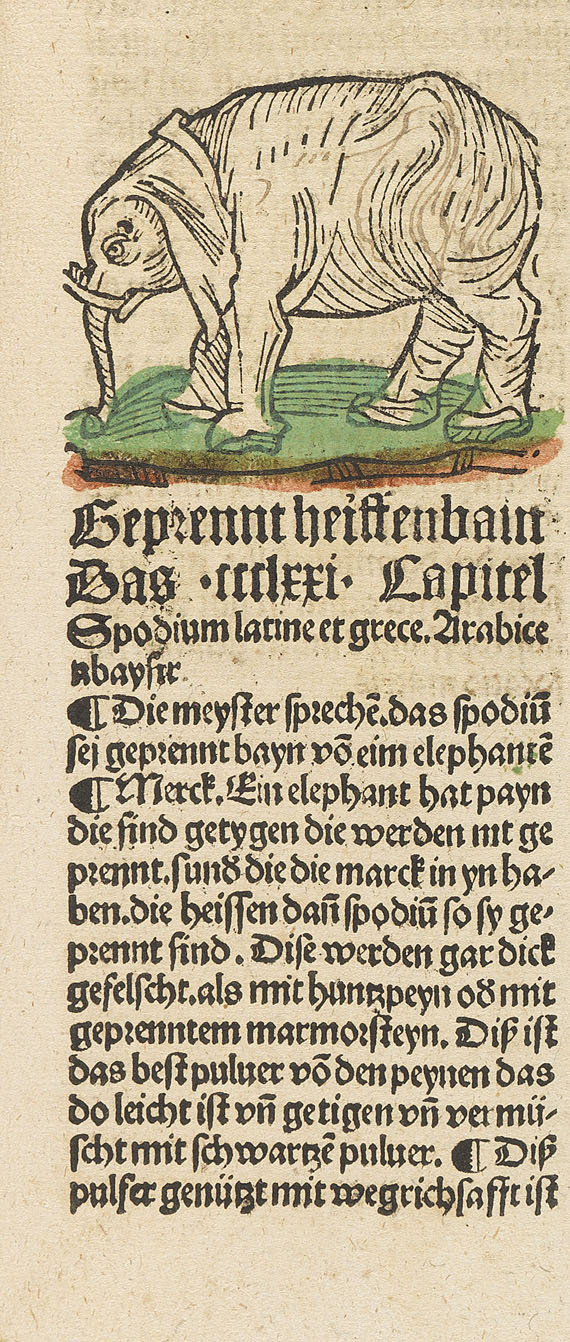 Geprennt helffenbain
Das ·ccclxxi· Capitel
Spodium latine et grece. Arabice
abayſir
¶ Die meyſter ſprechē.das ſpodiū
ſei geprennt bayn vō eim elephantē
¶ Merck. Ein elephant hat payn
die ſind getygen die werden nit ge
prennt.ſunď die die marck in yn ha⸗
ben.die heiſſen dañ ſpodiū ſo ſy ge⸗
prennt ſind. Diſe werden gar dick
gefelſcht.als mit huntzpeyn oď mit
geprenntem marmorſteyn. Diß iſt
das beſt puluer vō den peynen das
do leicht iſt vñ getigen vñ vermü⸗
ſcht mit ſchwartzē puluer. ¶ Diß
pulfer genützt mit wegrichſafft iſt